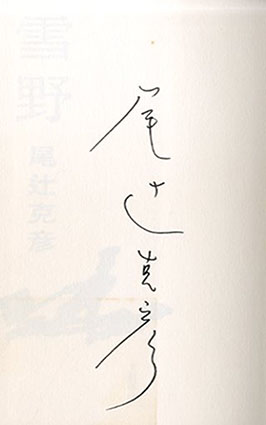 雪野
尾辻克彦
尾辻克彦